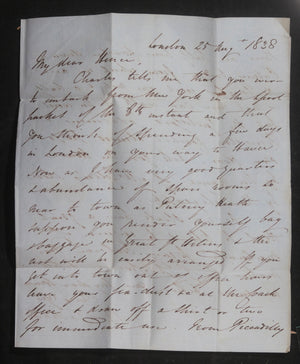 London 25 Augt 1838
My dear Henri,
Charles tells me that you were
to embark from New York in the
packet of the 8th instant and that
you thought of spending a few days
in London on your way to Havre
Now as I have very good quarters
& abundance of spare rooms so
near to town as Putney Heath
suppose you render yourself bag
& baggage in Great St Helens & the
rest will be easily arranged If you
get into town out of office hours
leave your at the back
office & draw off a shirt or two
for immediate use From Piccadilly